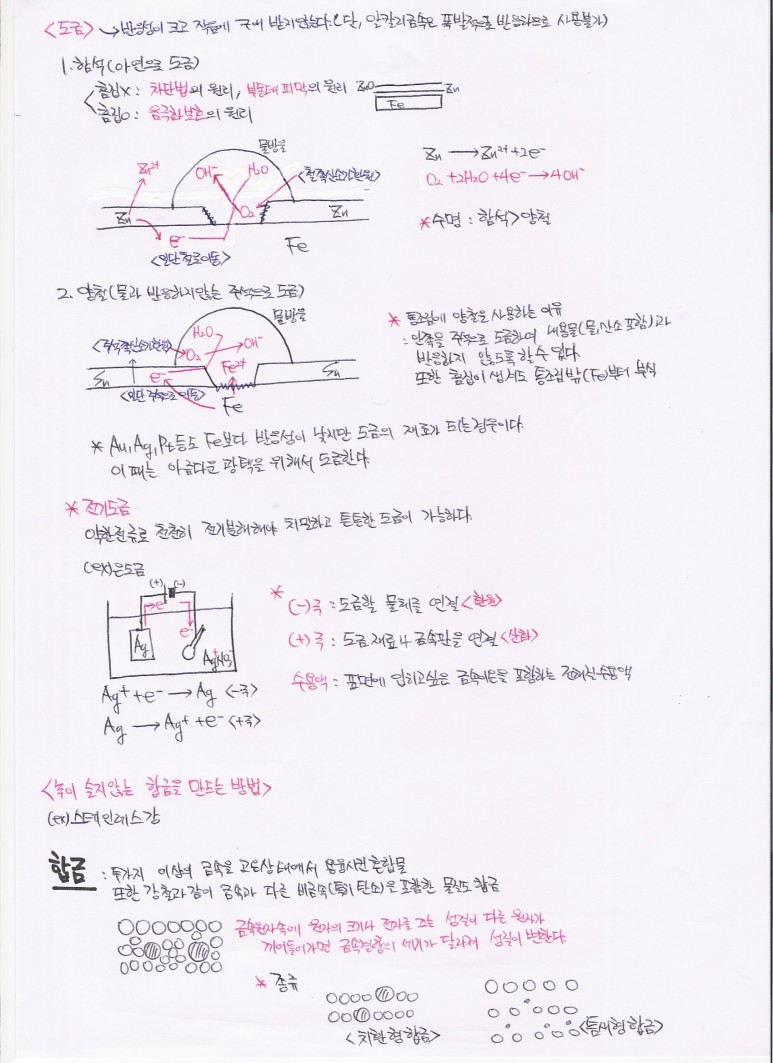 <도금> → 반응성이 크고 작음에 구애 받지않는다.(단, 알칼리금속은 폭발적으로 반응하므로 사용불가)
1. 함석(아연으로 도금)
흠집X : 차단법의 원리, 부동태 피막의 원리
ZnO Zn
Fe
흠집O : 음극화보호의 원리
물방울
Zn²⁺ OH⁻ H₂O <철쪽산소가환원>
Zn O₂ Zn
e⁻ Fe
<일단철로이동>
Zn → Zn²⁺ + 2e⁻
O₂ + 2H₂O + 4e⁻ → 4OH⁻
* 수명 : 함석 > 양철
2. 양철(물과 반응하지않는 주석으로 도금)
물방울
H₂O
<주석쪽산소가환원> O₂ OH⁻
Sn e⁻ Fe²⁺ Sn
<일단주석으로이동> Fe
* 통조림에 양철을 사용하는 이유
: 안쪽을 주석으로 도금하여 내용물(물,산소 포함)과
반응하지 않도록 할 수 있다.
또한 흠집이 생겨도 통조림밖(Fe)부터 부식
* Au, Ag, Pt 등도 Fe보다 반응성이 낮지만 도금의 재료가 되는경우이다.
이 때는 아름다운 광택을 위해서 도금한다.
* 전기도금
약한전류로 천천히 전기분해해야 치밀하고 튼튼한 도금이 가능하다.
(ex)은도금
(+) (-)
e⁻
e⁻
Ag
Ag⁺NO₃⁻
Ag⁺ + e⁻ → Ag <-극>
Ag → Ag⁺ + e⁻ <+극>
* (-)극 : 도금할 물체를 연결 <환원>
(+)극 : 도금 재료 금속판을 연결 <산화>
수용액 : 표면에 입히고싶은 금속이온을 포함하는 전해질수용액
<녹이 슬지않는 합금을 만드는 방법>
(ex)스테인레스강
합금 : 두가지 이상의 금속을 고온상태에서 용융시킨혼합물
또한 강철과같이 금속과 다른 비금속(특히 탄소)을 포함한 물질도 합금
금속원자속에 원자의 크기나 전자를 끄는 성질이 다른 원자가
끼어들어가면 금속결합의 세기가 달라져 성질이 변한다.
* 종류
<치환형합금>
<틈새형합금>